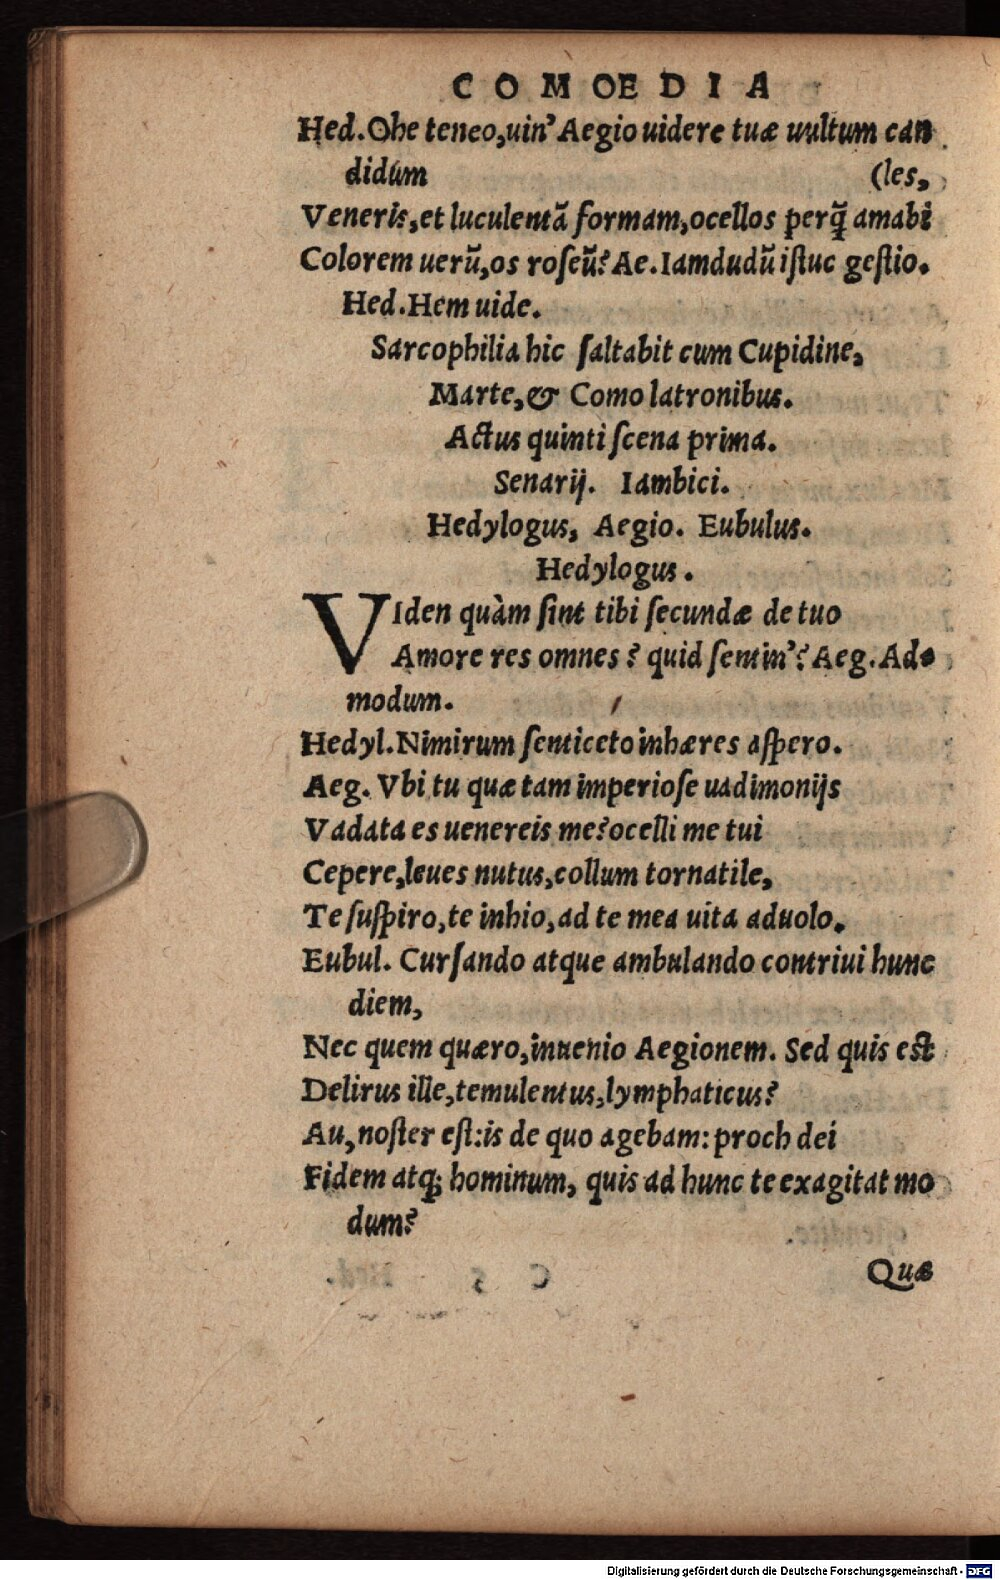 COMOEDIA
Hed. Ohe teneo, uin' Aegio uidere tuæ uultum can
didúm (les,
Veneris, et luculentā formam, ocellos perq̃ amabi
Colorem uerũ, os roſeũ? Ae. Iamdudũ iſtuc geſtio.
Hed. Hem uide.
Sarcophilia hic ſaltabit cum Cupidine,
Marte, & Como latronibus.
Actus quinti ſcena prima.
Senarij. Iambici.
Hedylogus, Aegio. Eubulus.
Hedylogus.
VIden quàm ſint tibi ſecundæ de tuo
Amore res omnes? quid ſentin'? Aeg. Ad-
modum.
Hedyl. Nimirum ſenticeto inhæres aſpero.
Aeg. Vbi tu quæ tam imperioſe uadimonijs
Vadata es uenereis me? ocelli me tui
Cepere, leues nutus, collum tornatile,
Te ſuſpiro, te inhio, ad te mea uita aduolo.
Eubul. Curſando atque ambulando contriui hunc
diem,
Nec quem quæro, inuenio Aegionem. Sed quis est
Delirus ille, temulentus, lymphaticus?
Au, noſter eſt: is de quo agebam: proch dei
Fidem atq; hominum, quis ad hunc te exagitat mo
dum?
Quæ
Digitalisierung gefördert durch die Deutsche Forschungsgemeinschaft - DFG